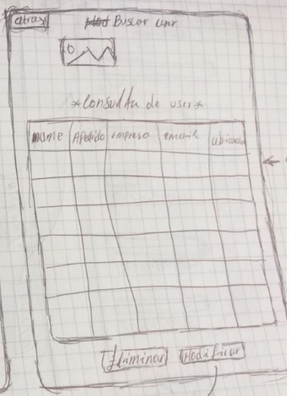 atras
Buscar user
*consulta de user*
Nome Apellido empresa email ubicacion
Eliminar Modificar